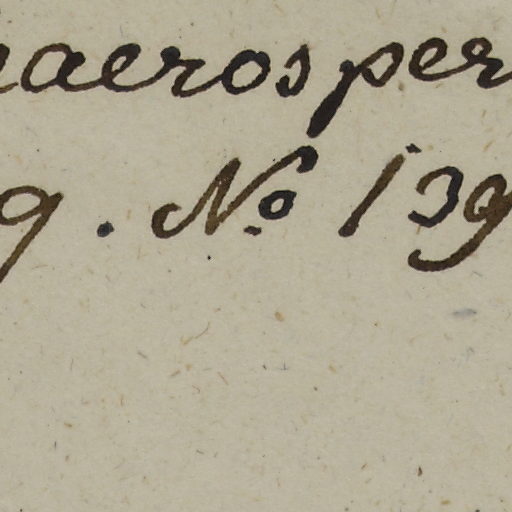 acrosper
9. No 139